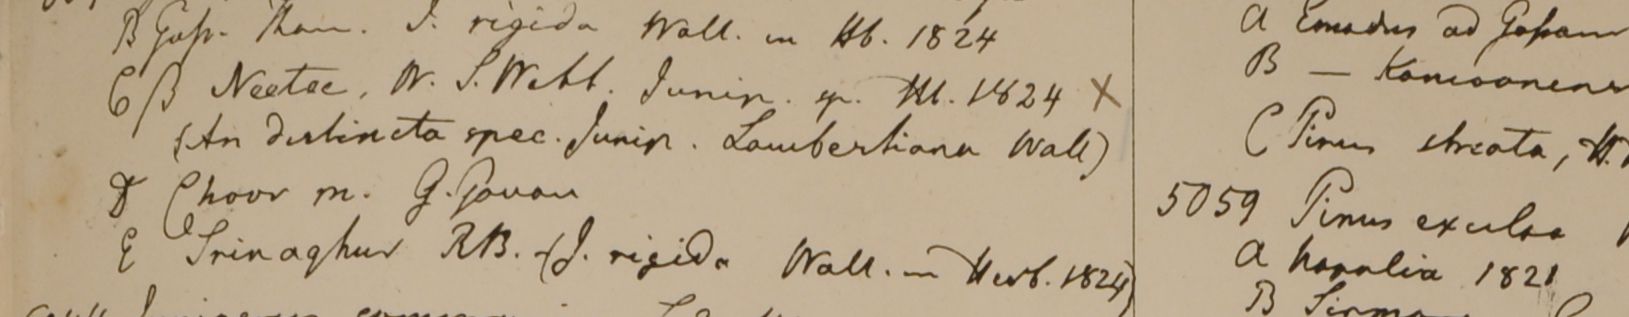 B Gossn. Than. J. rigida Wall. in Hb. 1824
C β Neetee. W. S. Webb. Junip. sp. Hb. 1824 X
(An distincta spec. Junip. Lambertiana Wall)
D Choor m. G. Govan
E Srinaghur RB. (J. rigida Wall. in Herb. 1824)
a Emodus ad Gossain
B — Kamaonens
C Pinus strcata, H.
5059 Pinus excelsa
a Napalia 1821
B Sirmo